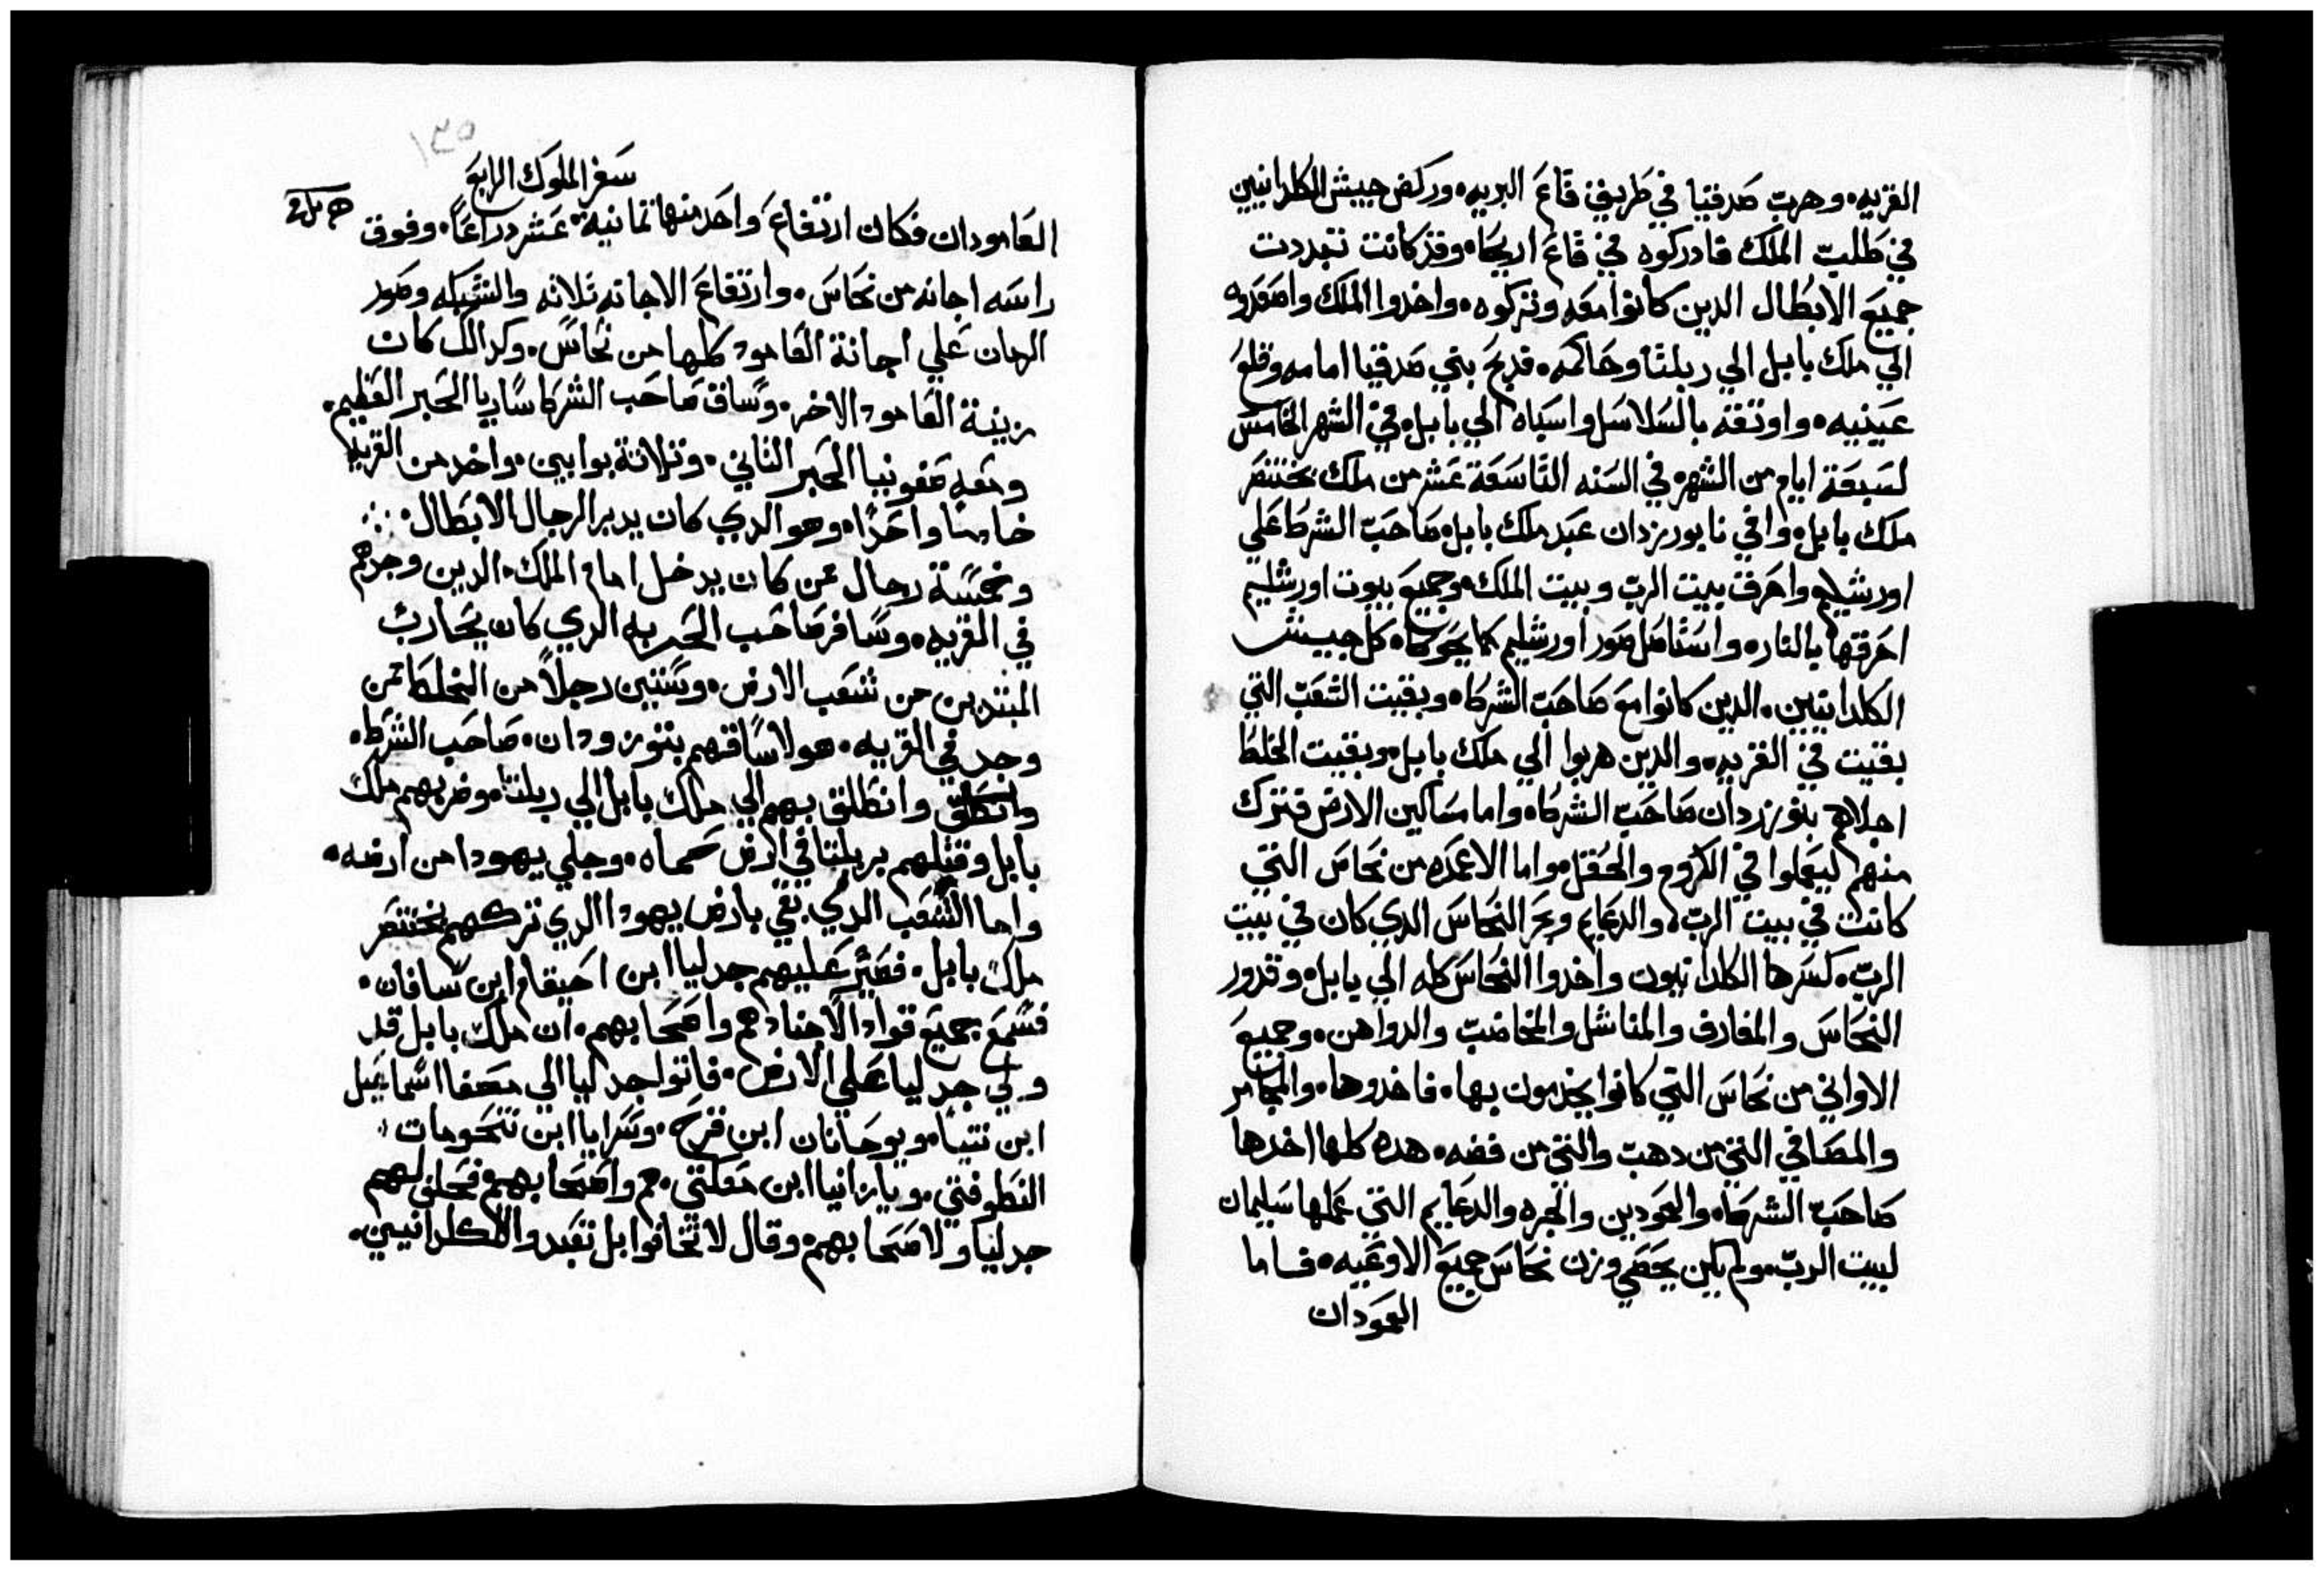 القريه. وهرب صدقيا في طريق قاع البريه. وركض جييش الكلدانيين
في طلب الملك فادركوه في قاع اريحا. وقد كانت تبددت
جميع الابطال الدين كانوا معه وتركوه. واخدوا الملك واصعدوه
الي ملك بابل الي ربلتا وحاكمه. فدبح بني صدقيا امامه وقلع
عينيه. واوتقه بالسلاسل واسباه الي بابل. في الشهر الخامس
لسبعة ايام من الشهر. في السنه التاسعة عشر من ملك بختنصر
ملك بابل. وافي نابوريزدان عبد ملك بابل. صاحب الشرط علي
اورشليم واحرق بيت الرب وبيت الملك. وجميع بيوت اورشليم
احرقها بالنار. واستاصل صور اورشليم كما يحوط. كل جييش
الكلدانيين. الدين كانوا مع صاحب الشرط. وبقيت الشعب التي
بقيت في القريه. والدين هربوا الي ملك بابل. وبقيت الخلط
اجلاهم بنوزردان صاحب الشرط. واما مساكين الارض فترك
منهم ليعملوا في الكروم والحقل. واما الاعمده من نحاس التي
كانت في بيت الرب. والدعايم وبحر النحاس الدي كان في بيت
الرب. كسرها الكلدانيون واخدوا النحاس كله الي بابل. وقدور
النحاس والمغارف والمناشل والمخاضب والدواهن. وجميع
الاواني من نحاس التي كانوا يخدمون بها. فاخدوها. والمجامر
والمصافي التي من دهب والتي من فضه. هده كلها اخدها
صاحب الشرط. والعمودين والبحره والدعايم التي عملها سليمان
لبيت الرب. ولم يكن يحصي وزن نحاس جميع الاوعيه. فاما
العمودان
١٣٥
سفر الملوك الرابع
العامودان فكان ارتفاع واحد منها تمانية عشر دراعا. وفوق
راسه اجانه من نحاس. وارتفاع الاجانه تلاته والشبكه وصور
الهان علي اجانة العامود كلها من نحاس. وكدالك كان
زينة العامود الاخر. وساق صاحب الشرط ساريا الحبر العظيم.
ومعه صفونيا الحبر التاني. وتلاتة بوابين. واخد من القريه
خادما واحدا. وهو الدي كان يدبر الرجال الابطال.
وخمسة رجال ممن كان يدخل امام الملك. الدين وجدهم
في القريه. وسافر صاحب الحربه الدي كان يحارب
المبتدين من شعب الارض. وستين رجلا من الخلط ممن
وجد في القريه. هولا ساقهم بنوزودان. صاحب الشرط.
وانطلق بهم الي ملك بابل الي ربلتا. وضربهم ملك
بابل وقتلهم بربلتا في ارض حماه. وجلي يهودا من ارضه.
واما الشعب الدي بقي بارض يهودا الدي تركهم بختنصر
ملك بابل. فصير عليهم جدليا ابن احيقام ابن سافان.
فسمع جميع قواد الاجناد هم واصحابهم. ان ملك بابل قد
ولي جدليا علي الارض. فاتوا جدليا الي مصفا اسماعيل
ابن نتيا. ويوحانان ابن قرح. وسرايا ابن تنحومات
النطوفتي. ويازانيا ابن معكتي. هم واصحابهم فحلف لهم
جدليا ولاصحابهم. وقال لا تخافوا بل تعبدوا الكلدانيين.